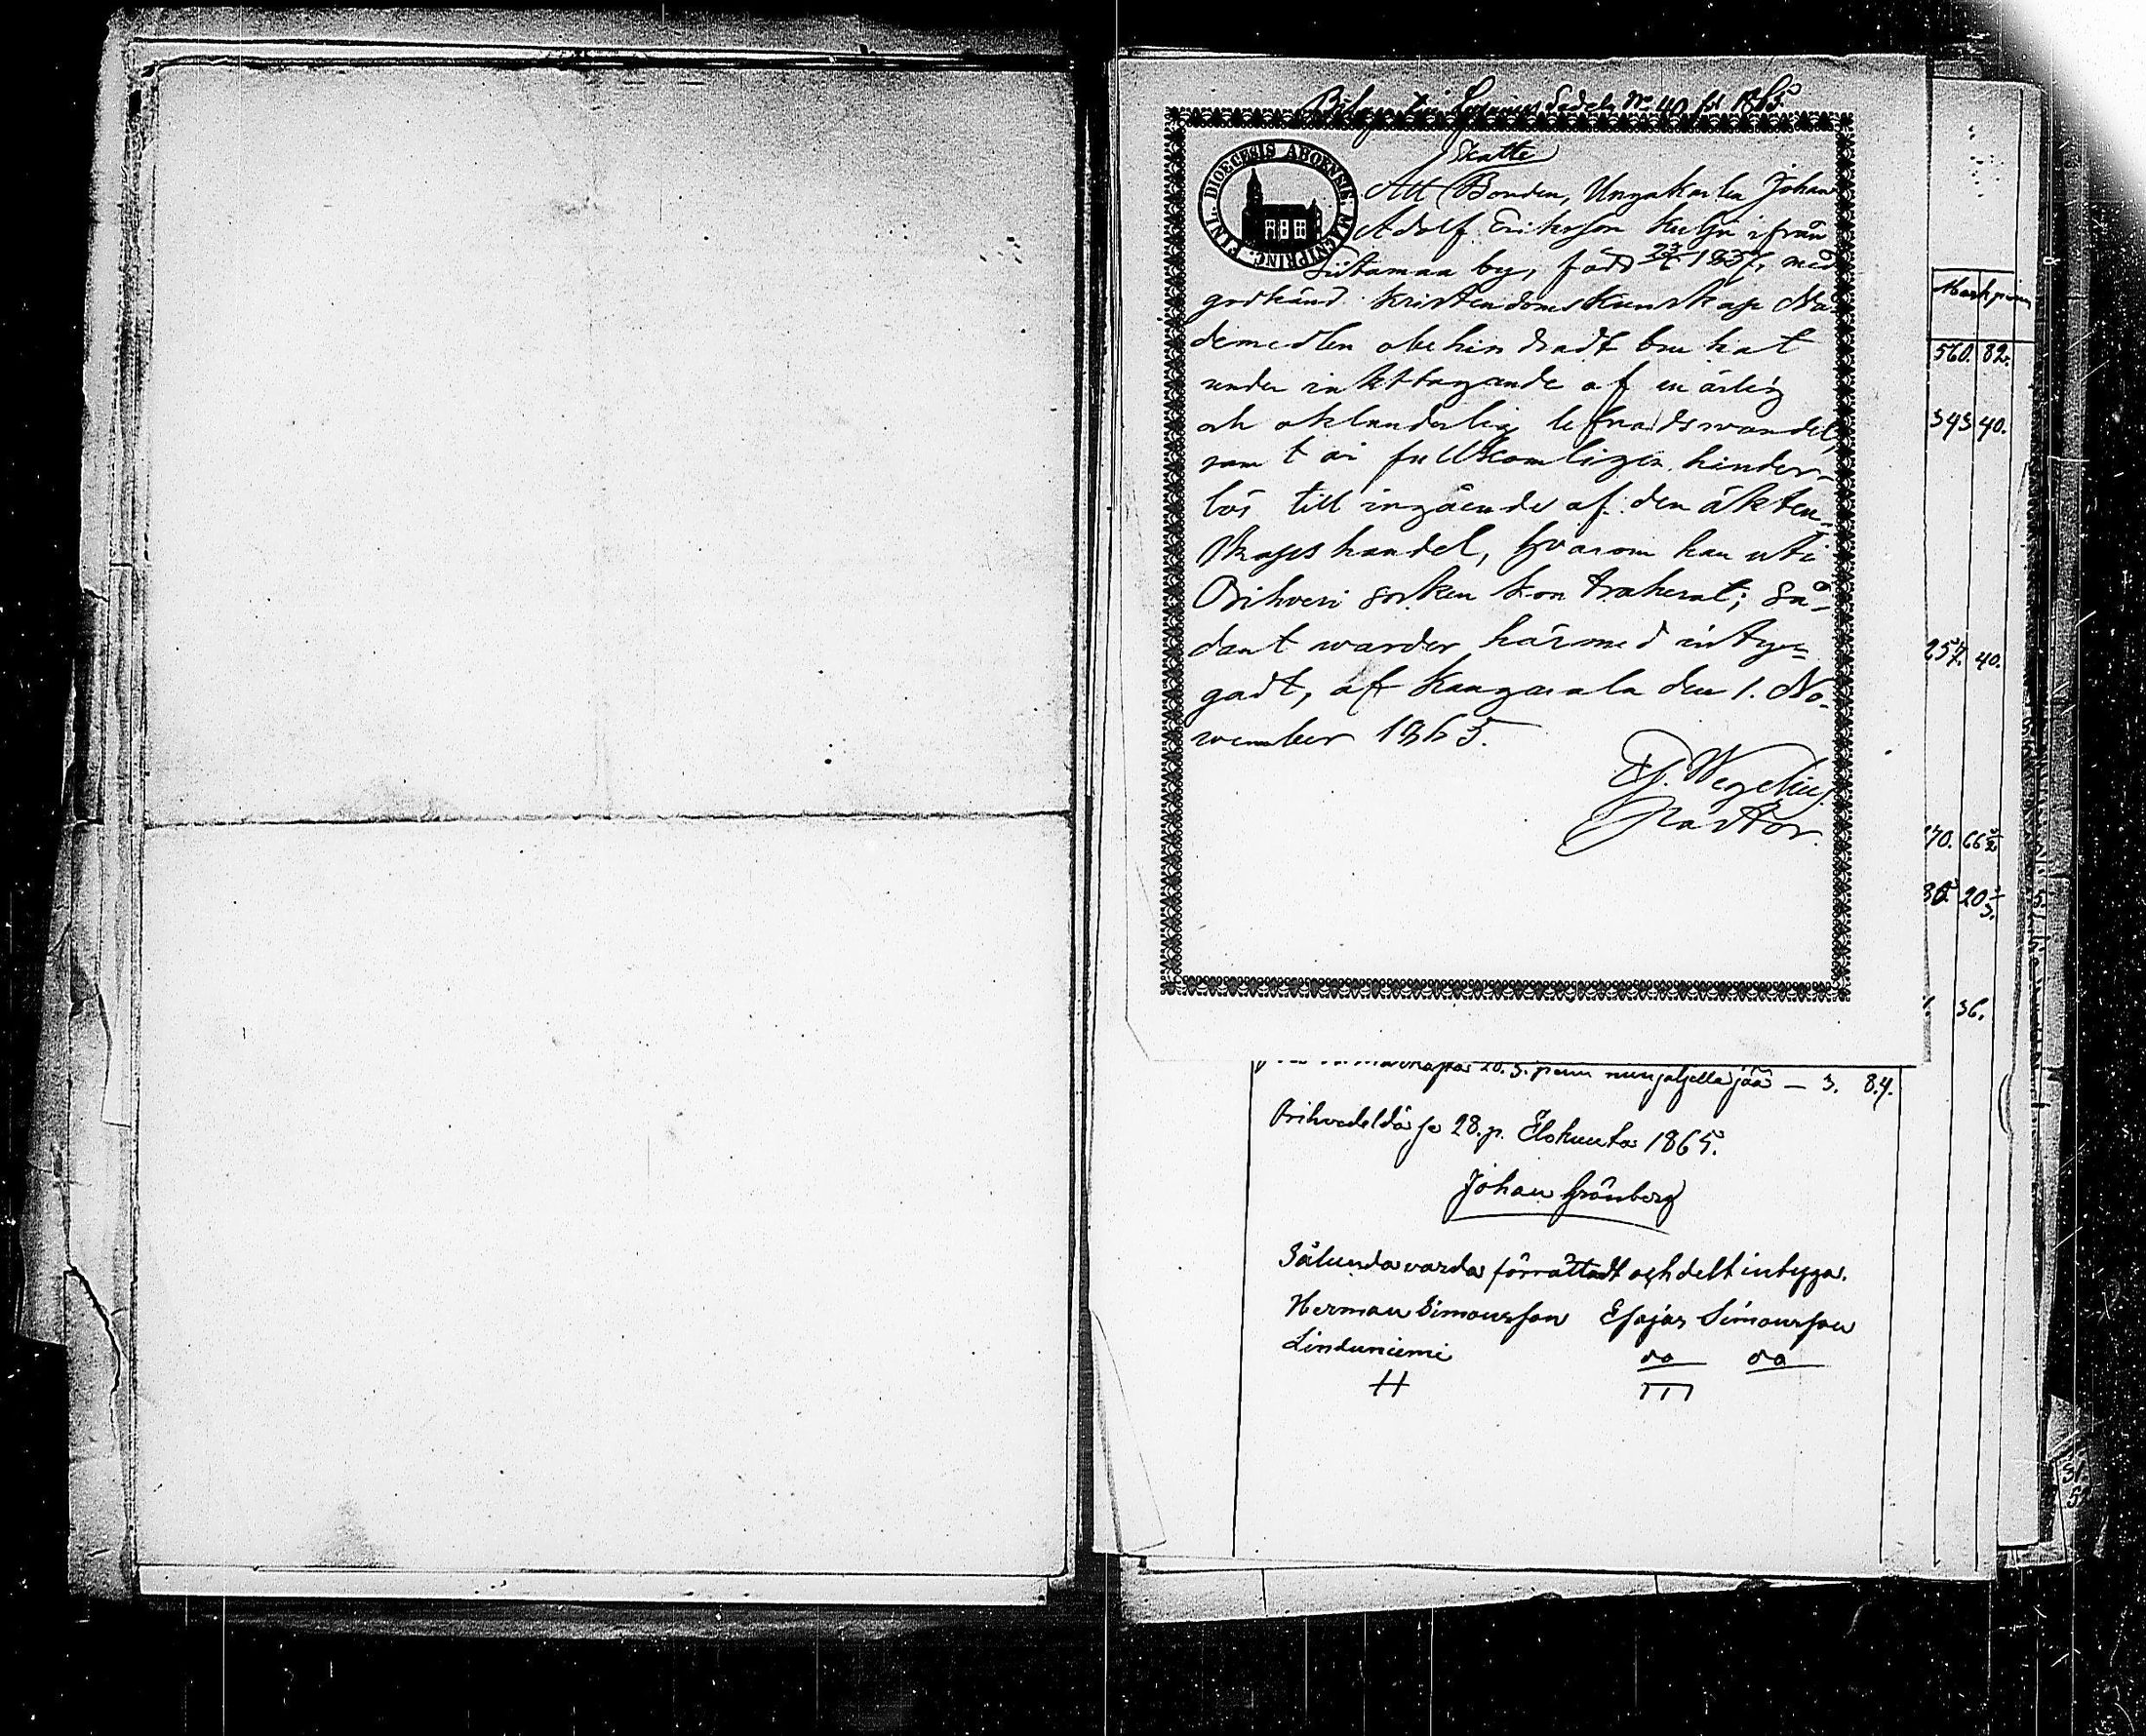 Bilaga till Lysnings Sedeln No 40 för 1865
Skatte
DIOECESIS ABOENSIS MAGNI PRINC. FINL.
Att Bonden, Ungakarlen Johan
Adolf Eriksson ifrån
by, född med
godkänd Kristendoms Kunskap Nå-
demedlen obehindradt brukat
under iakttagande af en ärlig
och oklanderlig lefnadswandel,
samt är fullkomligen hinder-
lös till ingående af den äkten-
skapshandel, hvarom han uti
Orihvesi socken kontraherat; så-
dant warder härmed intyg-
gadt, af Kangasala den 1. No-
wember 1865.
Wegelius
Pastor.
Mark penni
560. 82.
343 40.
257. 40.
70. 66
20
36.
20. 3. penni jää — 3. 84.
Orihvedeldä se 28. p. Elokuuta 1865.
Johan Grönberg
Sålunda varda förrättadt och delt intyga.
Herman Simonsson Esajas Simonsson
Linduniemi do do
H III